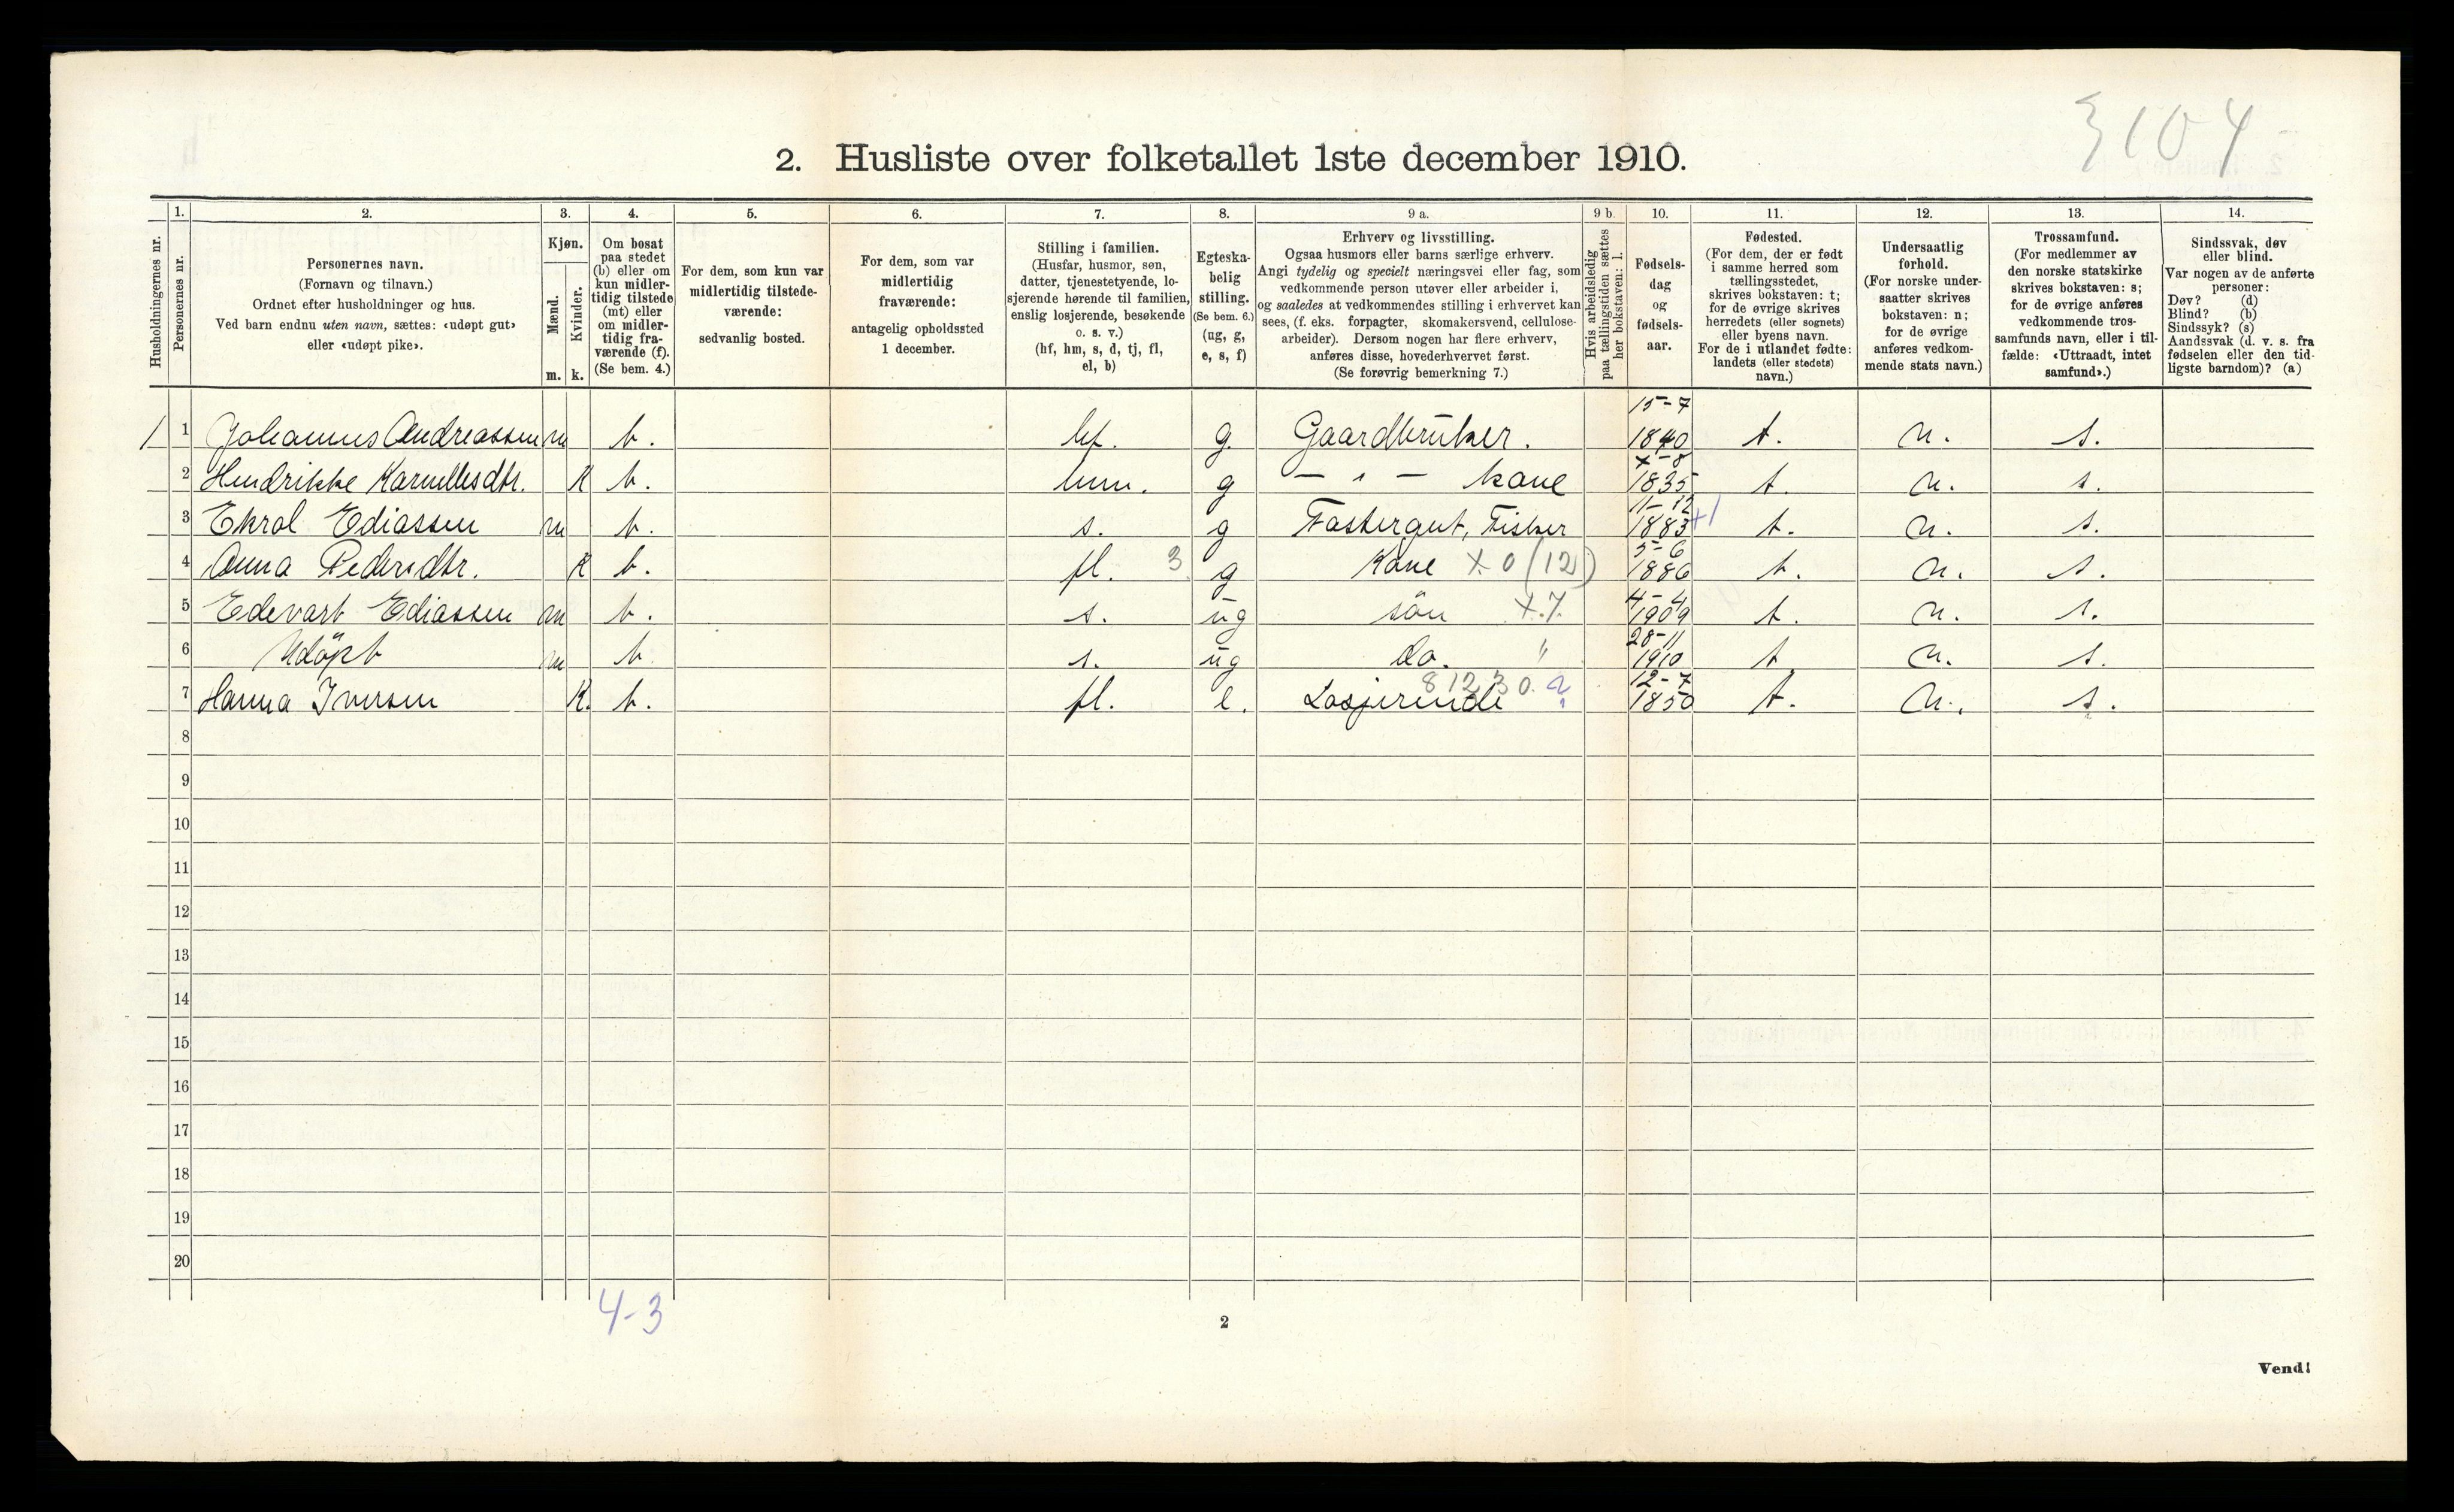 3104
2. Husliste over folketallet 1ste december 1910.
Husholdningernes nr.
1.
Personernes nr.
2.
Personernes navn.
(Fornavn og tilnavn.)
Ordnet efter husholdninger og hus.
Ved barn endnu uten navn, sættes: «udøpt gut»
eller «udøpt pike».
3.
Kjøn.
Mænd.
Kvinder.
m. k.
4.
Om bosat
paa stedet
(b) eller om
kun midler-
tidig tilstede
(mt) eller
om midler-
tidig fra-
værende (f).
(Se bem. 4.)
5.
For dem, som kun var
midlertidig tilstede-
værende:
sedvanlig bosted.
6.
For dem, som var
midlertidig
fraværende:
antagelig opholdssted
1 december.
7.
Stilling i familien.
(Husfar, husmor, søn,
datter, tjenestetyende, lo-
sjerende hørende til familien,
enslig losjerende, besøkende
o. s. v.)
(hf, hm, s, d, tj, fl,
el, b)
8.
Egteska-
belig
stilling.
(Se bem. 6.)
(ug, g,
e, s, f)
9 a.
Erhverv og livsstilling.
Ogsaa husmors eller barns særlige erhverv.
Angi tydelig og specielt næringsvei eller fag, som
vedkommende person utøver eller arbeider i,
og saaledes at vedkommendes stilling i erhvervet kan
sees, (f. eks. forpagter, skomakersvend, cellulose-
arbeider). Dersom nogen har flere erhverv,
anføres disse, hovederhvervet først.
(Se forøvrig bemerkning 7.)
9 b.
Hvis arbeidsledig
paa tællingstiden sættes
her bokstaven: l.
10.
Fødsels-
dag
og
fødsels-
aar.
11.
Fødested.
(For dem, der er født
i samme herred som
tællingsstedet,
skrives bokstaven: t;
for de øvrige skrives
herredets (eller sognets)
eller byens navn.
For de i utlandet fødte:
landets (eller stedets)
navn.)
12.
Undersaatlig
forhold.
(For norske under-
saatter skrives
bokstaven: n;
for de øvrige
anføres vedkom-
mende stats navn.)
13.
Trossamfund.
(For medlemmer av
den norske statskirke
skrives bokstaven: s;
for de øvrige anføres
vedkommende tros-
samfunds navn, eller i til-
fælde: «Uttraadt, intet
samfund».)
14.
Sindssvak, døv
eller blind.
Var nogen av de anførte
personer:
Døv? (d)
Blind? (b)
Sindssyk? (s)
Aandssvak (d. v. s. fra
fødselen eller den tid-
ligste barndom)? (a)
1 1 Johannes Andreassen m b. hf. g. Gaardbruker. 15-7 1840 t. n. s.
2 Hendrikke Karnillesdtr. K b. hm. g — " — kone x-8 1835 t. n. s.
3 Ekrol Ediassen m b. s. g Fastergut, Fisker 11-12 1883 +1 t. n. s.
4 Anna Pedersdtr. K b. fl. 3 g Kone x 0 (12) 5-6 1886 t. n. s.
5 Edevart Ediassen m b. s. ug sön x.7. 4-4 1909 t. n. s.
6 Udöpt m b s. ug do. " 28-11 1910 t n. s.
7 Hanna Iversen K. b. fl. e. Losjerende 81230. ? 12-7 1850 t. n. s.
8
9
10
11
12
13
14
15
16
17
18
19
20
4-3
2
Vend!